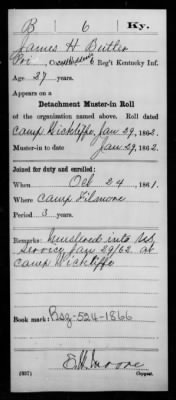 B 6 Ky.
James H Butler
Pri , Co. 6 Reg't Kentucky Inf.
Age 27 years.
Appears on a
Detachment Muster-in Roll
of the organization named above. Roll dated
Camp Wickliffe, Jan 29, 1862.
Muster-in to date Jan 29, 1862
Joined for duty and enrolled:
When Oct 24, 1861.
Where Camp Filsmore
Period 3 years.
Remarks: Mustered into U.S.
Service Jan 29/62 at
Camp Wickliffe
Book mark: R&P-524-1866
E.W. Moore
(337) Copyist.